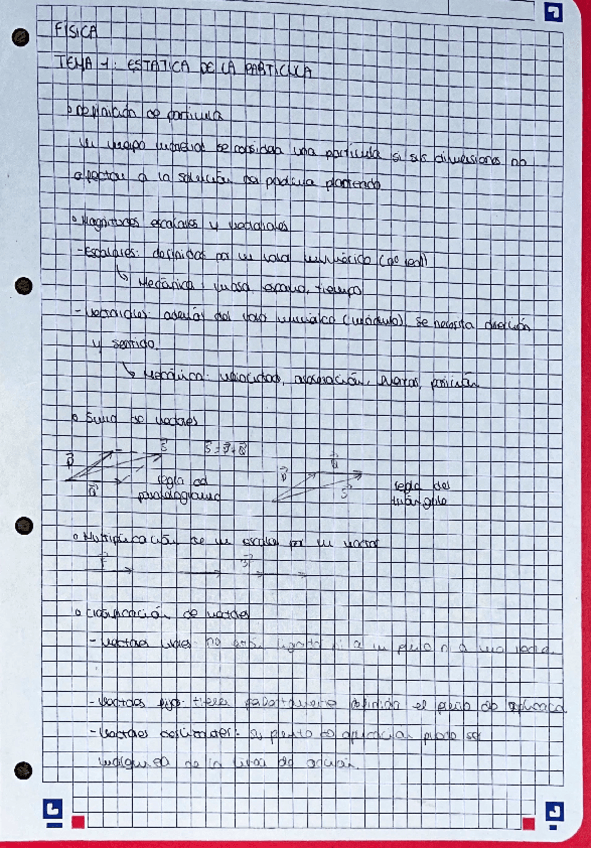 FÍSICA
TEMA 1: ESTÁTICA DE LA PARTÍCULA
Definición de partícula
Un cuerpo material se considera una partícula si sus dimensiones no
afectan a la solución del problema planteado
Magnitudes escalares y vectoriales
- Escalares: definidas por un valor numérico (nº real)
↳ Mecánica: masa, espacio, tiempo
- Vectoriales: además del valor numérico (módulo), se necesita dirección
y sentido.
↳ Mecánica: velocidad, aceleración, fuerzas, posición
Suma de vectores
P S S = P + Q P Q
Q regla del S regla del
paralelogramo triángulo
Multiplicación de un escalar por un vector
Clasificación de vectores
- Vectores libres: no están ligados a un punto ni a una recta
- Vectores fijos: tiene definido el punto de aplicación
- Vectores deslizantes: el punto de aplicación puede ser
cualquiera de la línea de acción.